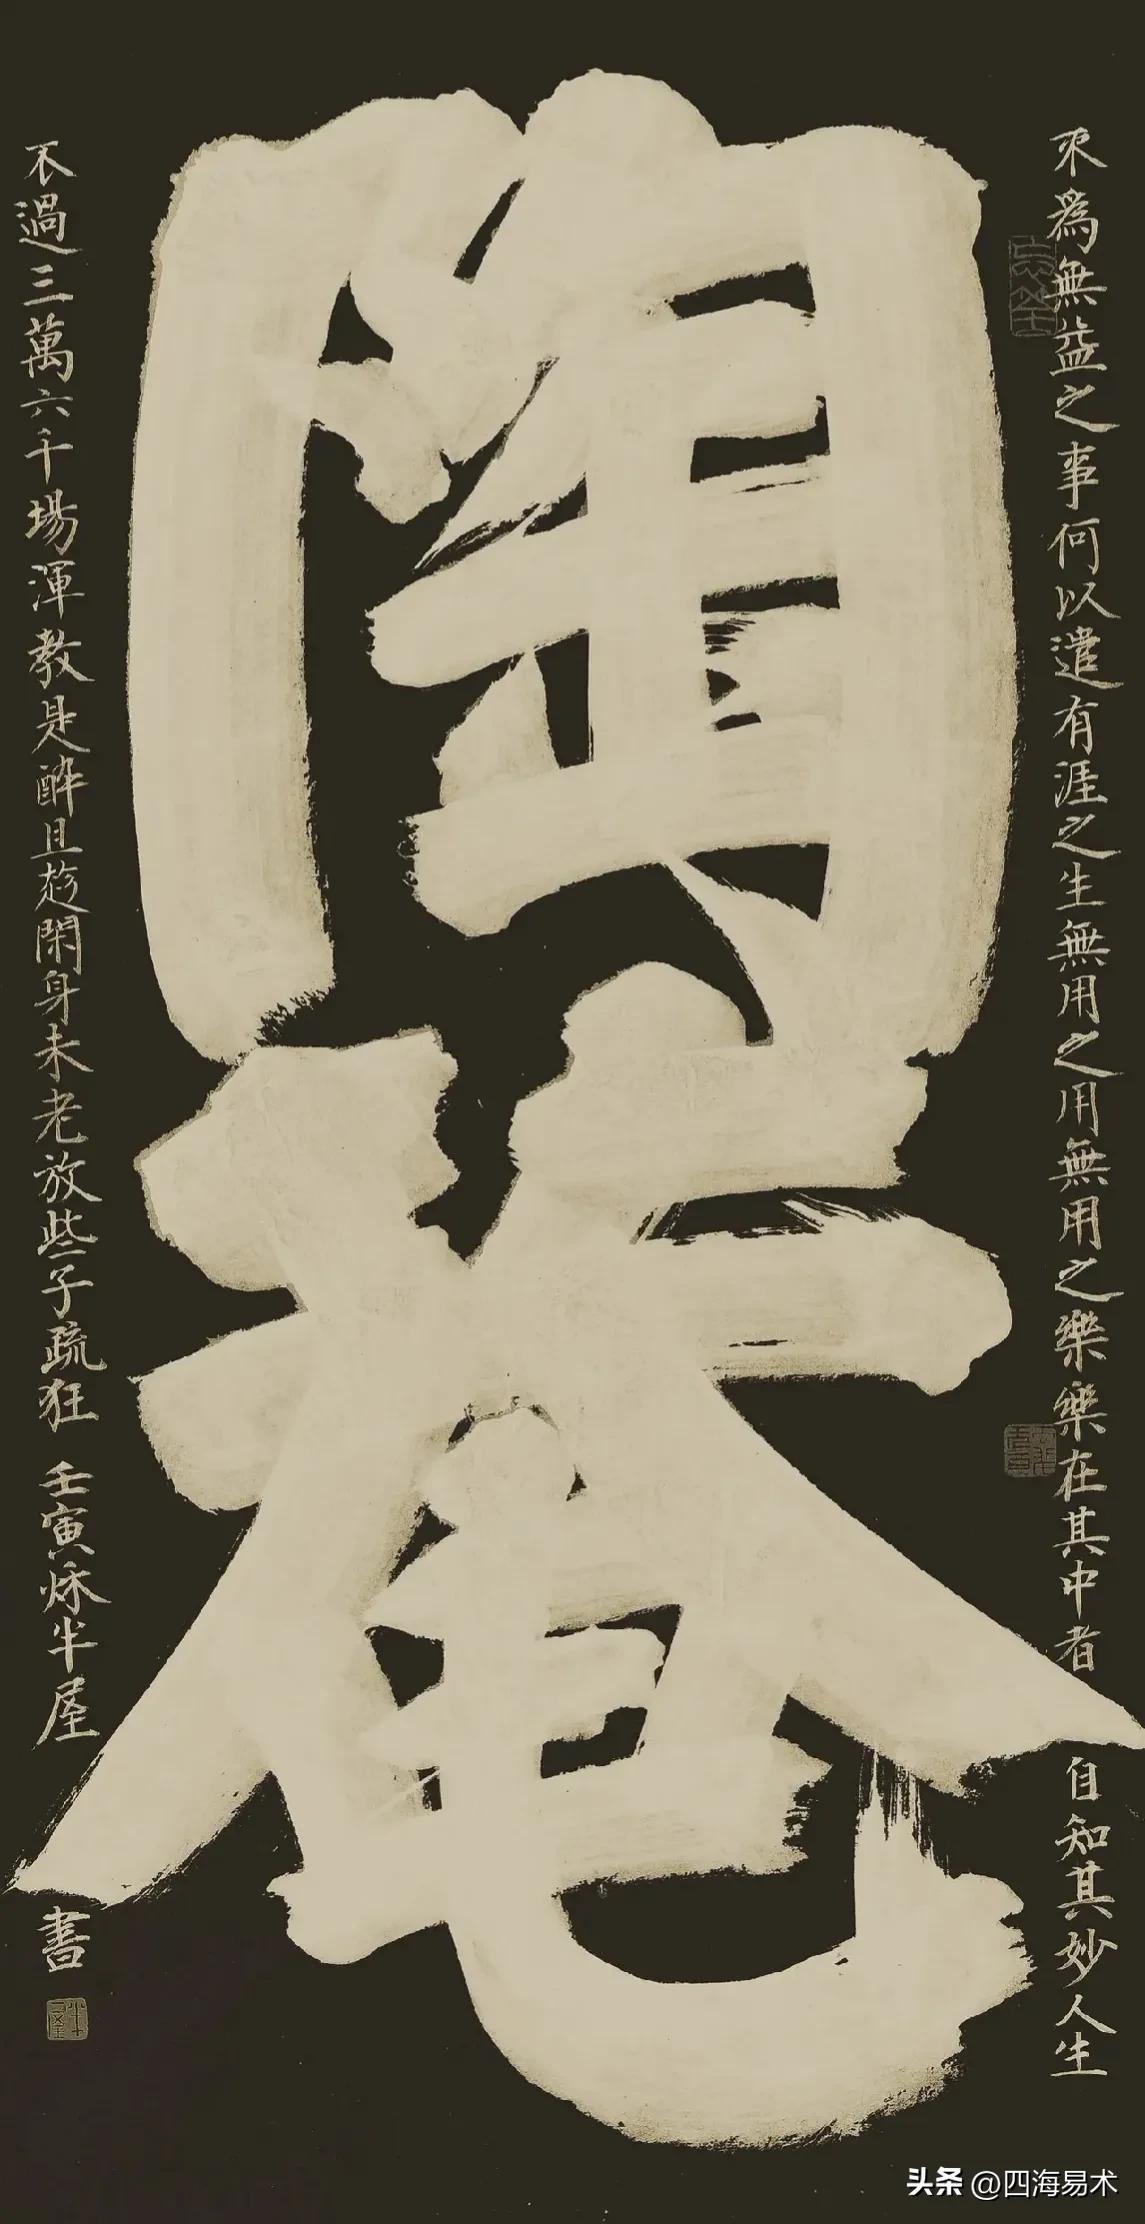 陶菴
不為無益之事何以遣有涯之生無用之用無用之樂樂在其中者自知其妙人生
不過三萬六千場渾教是醉且趁閑身未老放些子疏狂 壬寅秋半屋書
头条 @四海易术